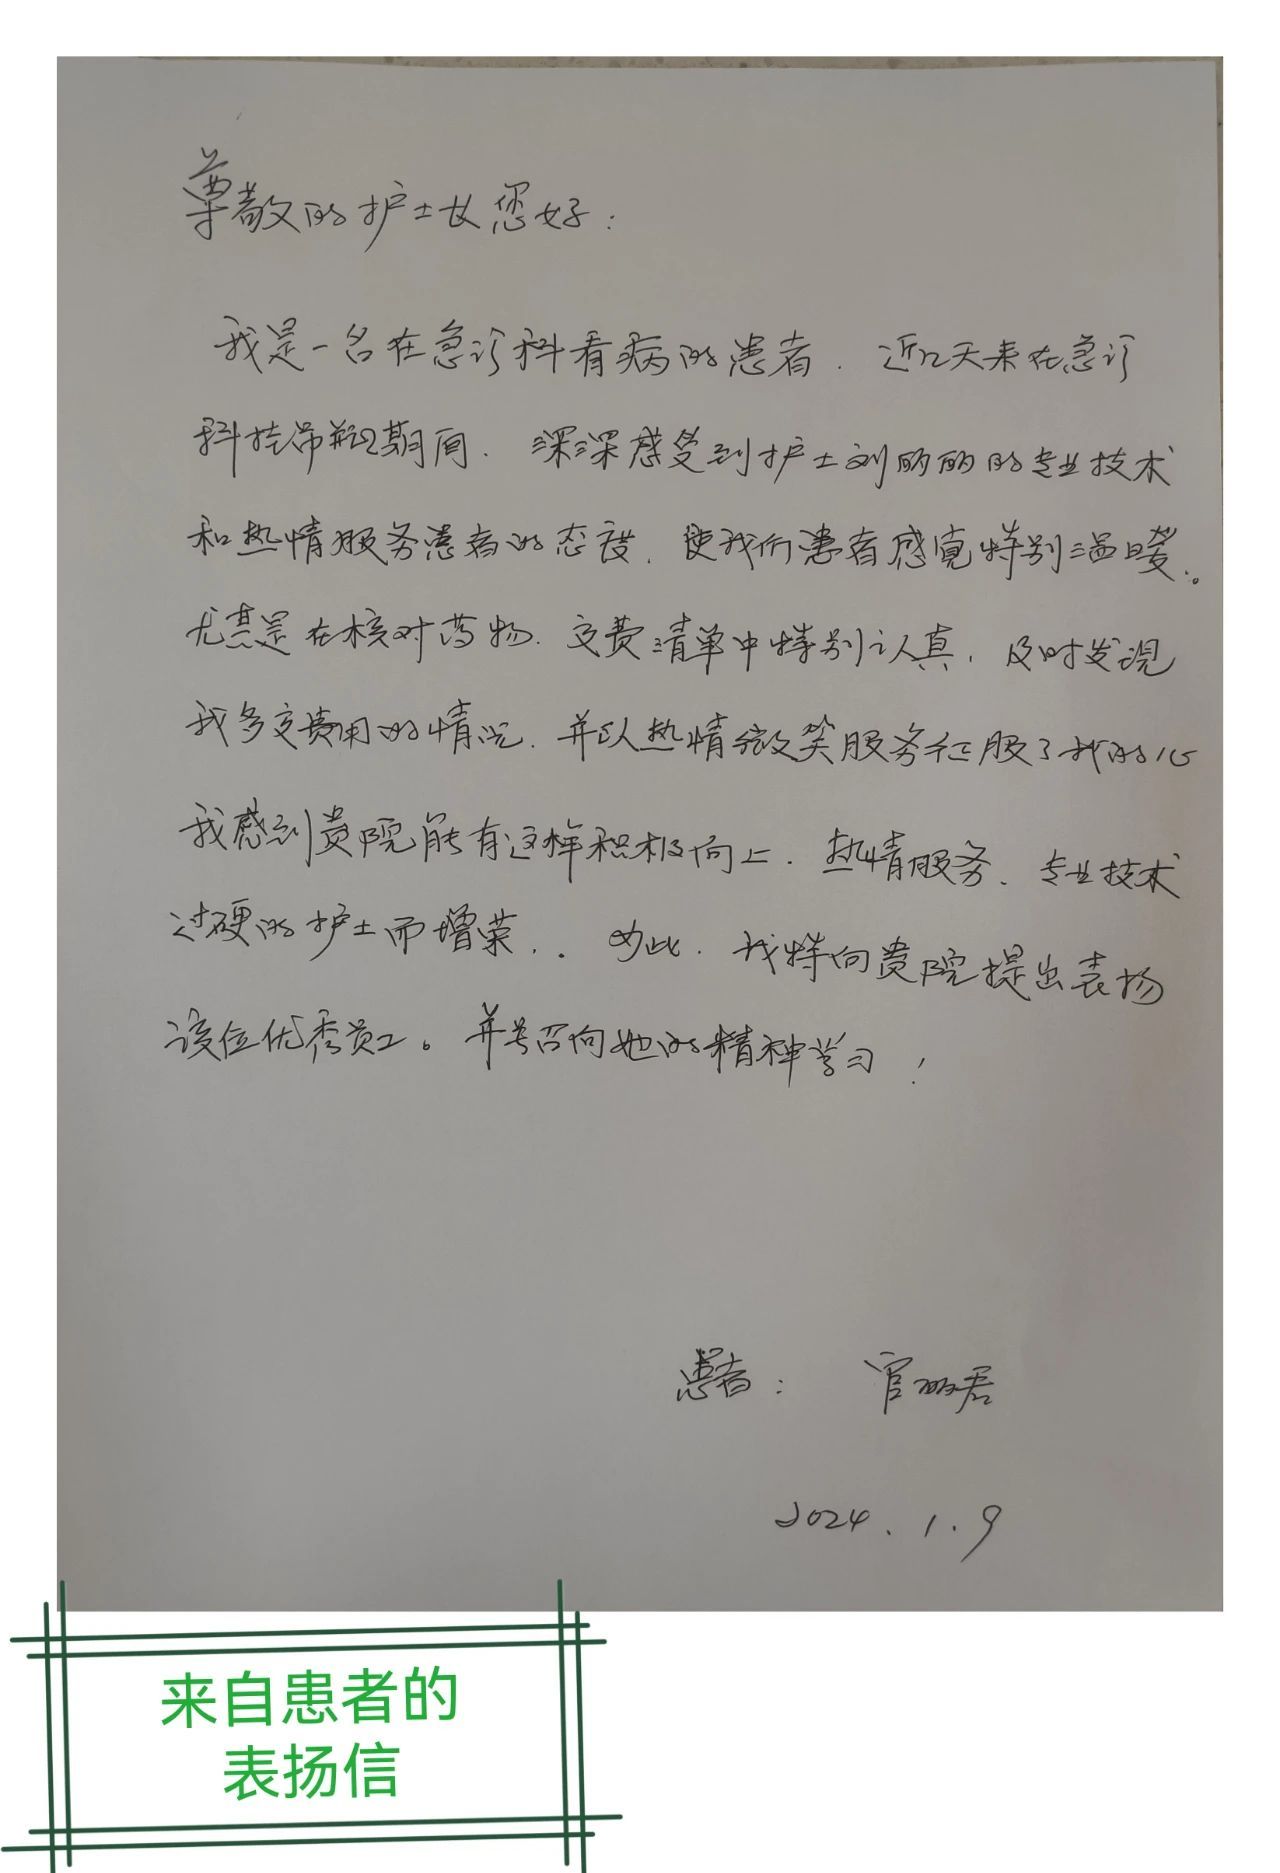 尊敬的护士长您好：
我是一名在急诊科看病的患者．近几天来在急诊
科挂吊瓶期间．深深感受到护士刘丽丽的专业技术
和热情服务患者的态度．使我们患者感觉特别温暖．。
尤其是在核对药物．交费清单中特别认真，及时发现
我多交费用的情况．并以热情微笑服务征服了我的心
我感到贵院能有这样积极向上．热情服务．专业技术
过硬的护士而增荣．．为此．我特向贵院提出表扬
该位优秀员工。并号召向她的精神学习！
患者：官丽君
2024.1.9
来自患者的
表扬信